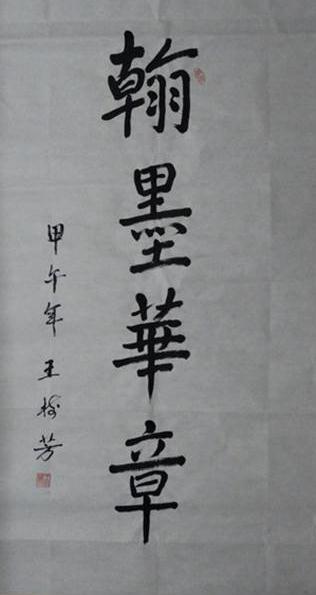 翰墨華章
甲午年 王樹芳